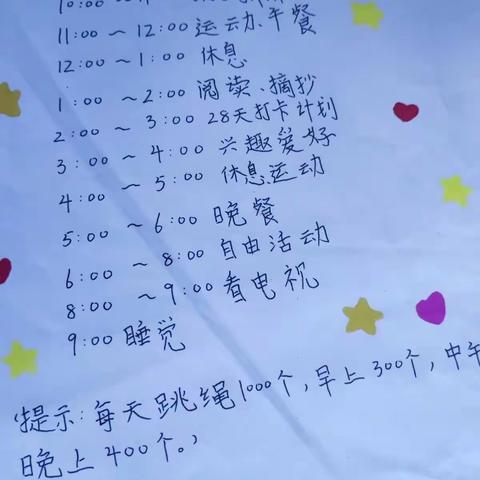 11:00～12:00 运动、午餐
12:00～1:00 休息
1:00～2:00 阅读、摘抄
2:00～3:00 28天打卡计划
3:00～4:00 兴趣爱好
4:00～5:00 休息运动
5:00～6:00 晚餐
6:00～8:00 自由活动
8:00～9:00 看电视
9:00 睡觉
(提示:每天跳绳1000个,早上300个,中午
晚上400个。)